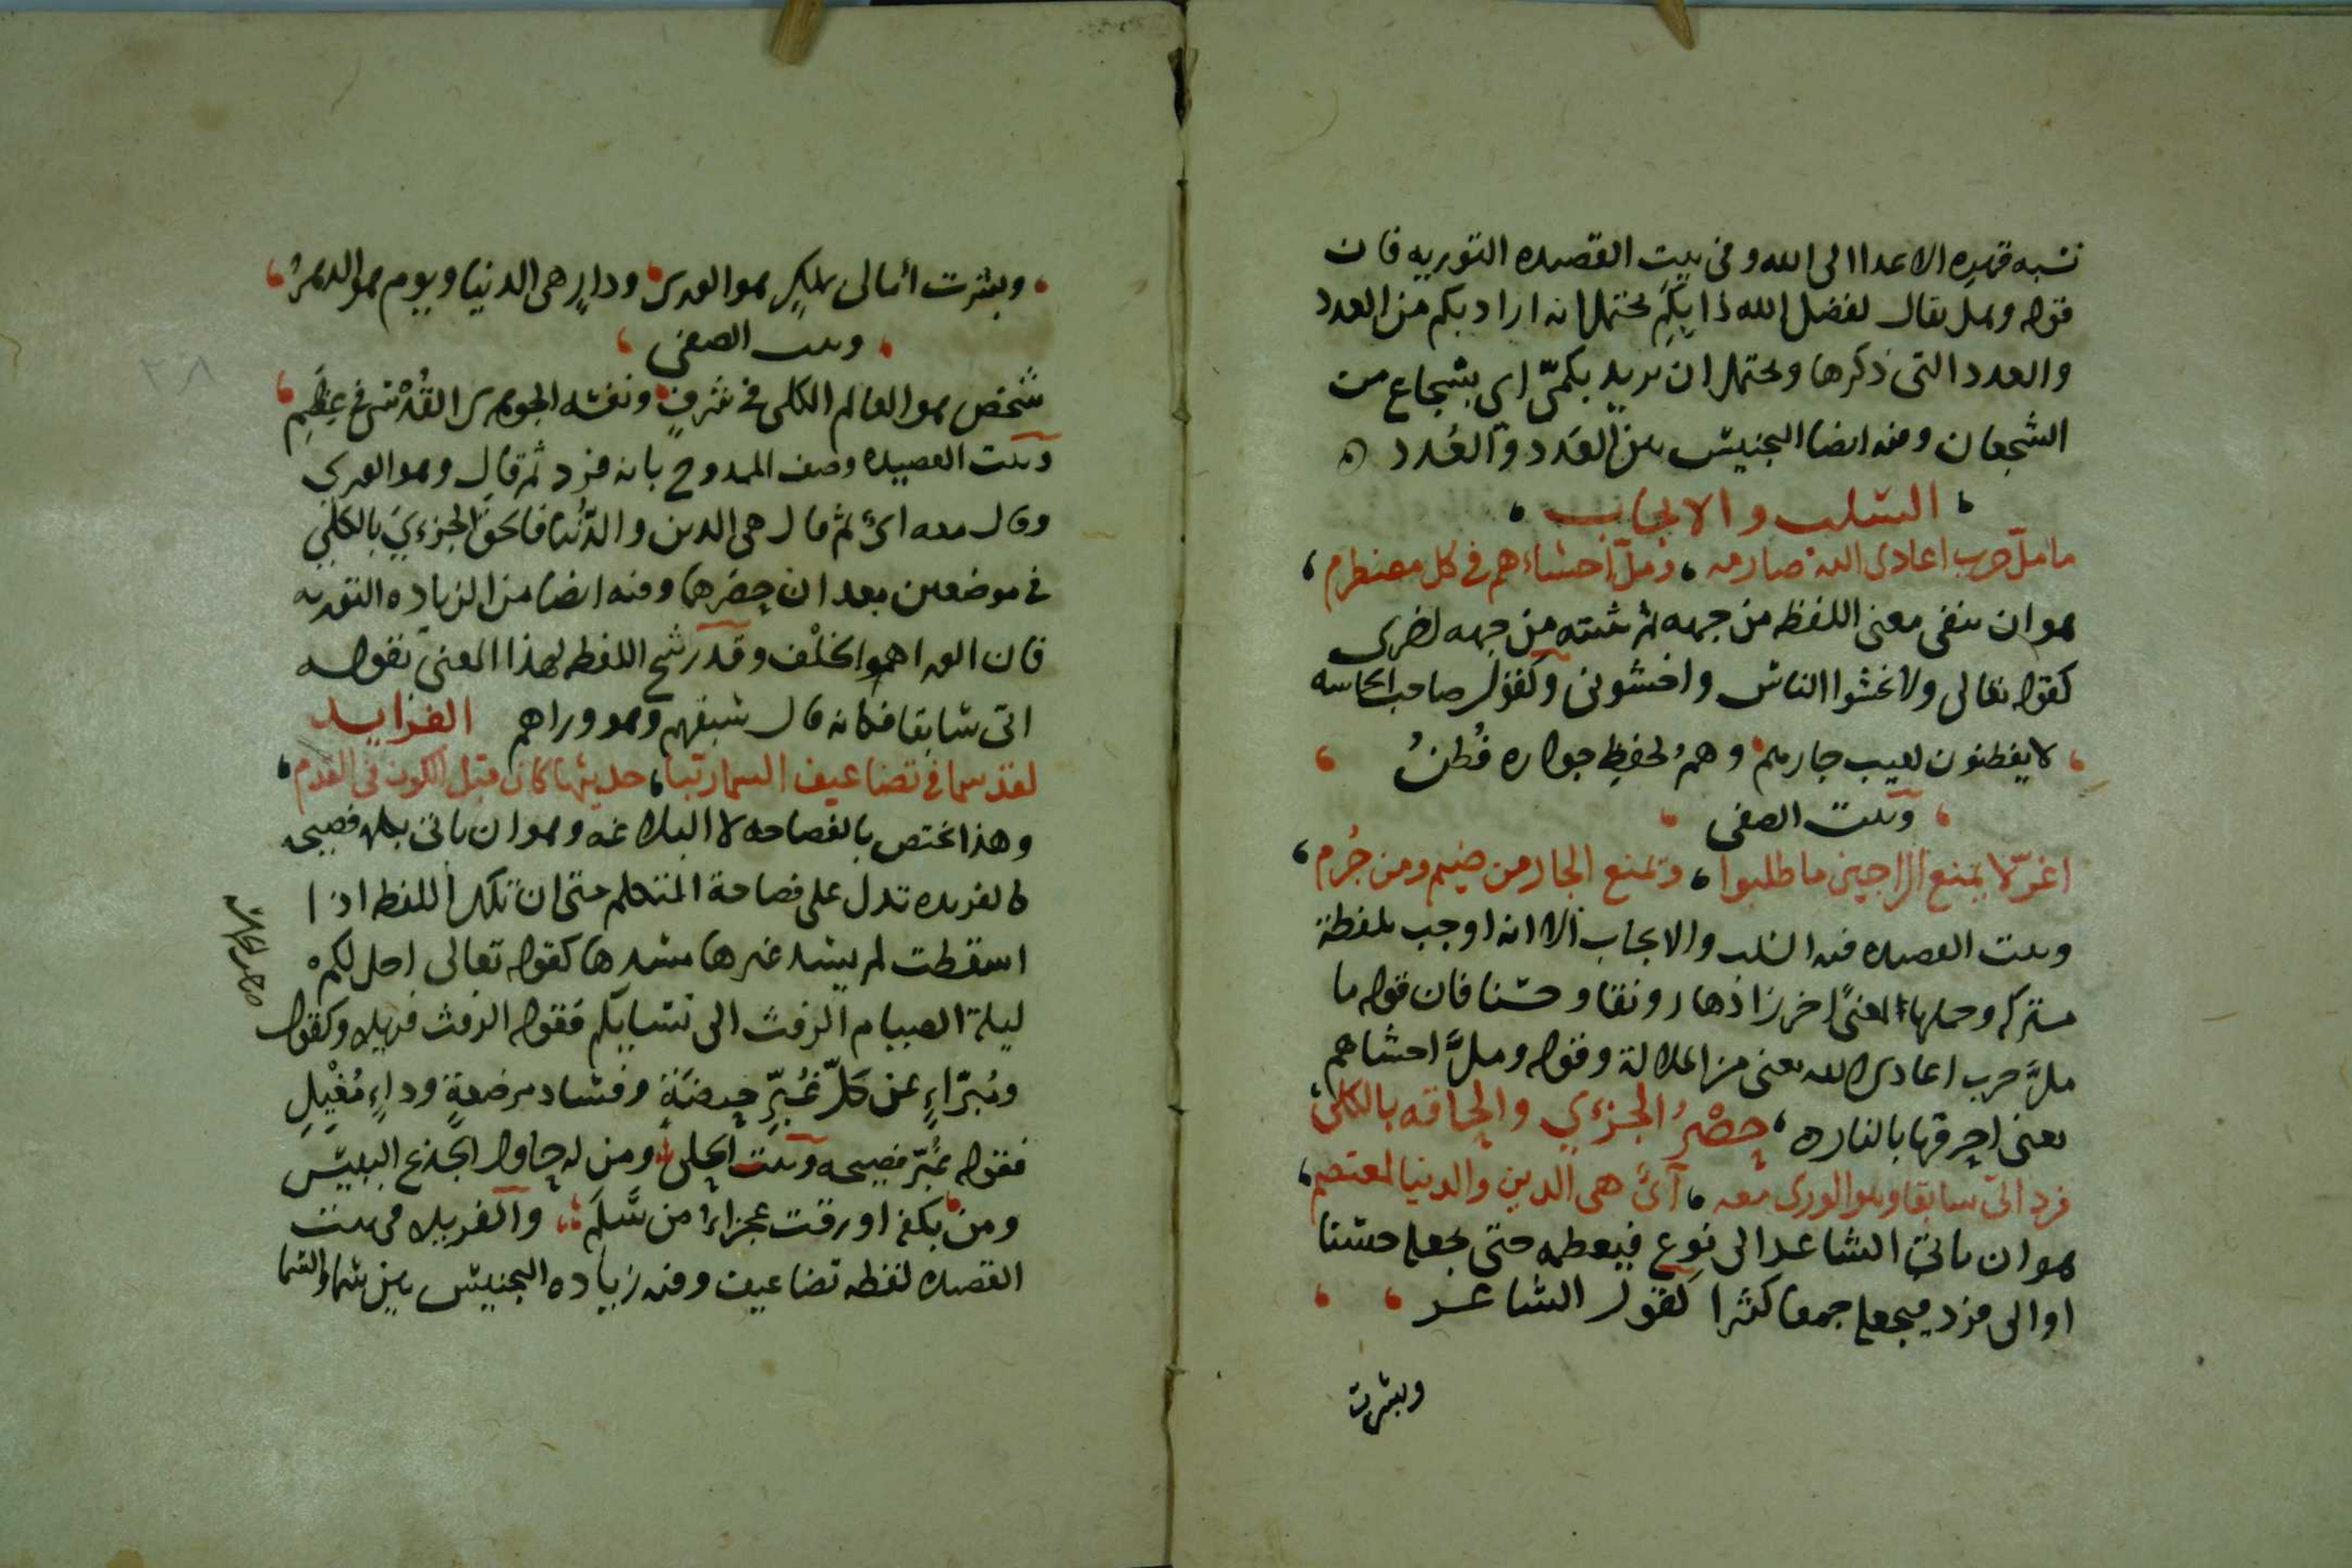 نسبه قهره الاعدا الى الله وفى بيت القصيده التوريه فان
قوله وهل يقال لفضل الله ذا بكم يحتمل انه اراد بكم من العدد
والعدد التى ذكرها ويحتمل ان يريد بكمىّ اى بشجاع من
الشجعان وفيه ايضا التجنيس بين العَدد والعُدد
السلب والايجاب
ما ملّ حرب اعادى الله صارمه وملّ احشاءهم فى كل مضطرم
هو ان ينفى معنى اللفظ من جهه ثم يثبته من جهه اخرى
كقوله تعالى ولا تخشوا الناس واخشونى وكقول صاحب الحماسه
لا يفطنون لعيب جارهم وهمُ لحفظِ جواره فُطنُ
وبيت الصفى
اغرّ لا يمنع الراجين ما طلبوا ويمنع الجار من ضيم ومن حُرم
وبيت القصيده فيه السلب والايجاب الا انه اوجب بلفظة
مشتركه وحملها لمعنًى اخر زادها رونقا وحسنا فان قوله ما
ملَّ حرب اعادى الله يعنى من الملالة وقوله وملَّ احشاهم
يعنى احرقها بالناره حصْرُ الجزءي والحاقه بالكلى
فرد اتى سابقا وهو الورى معه أىٌ هى الدين والدنيا لمعتصم
هو ان ياتىَ الشاعر الى نوع فيعظمه حتى يجعله جنسا
او الى فرد فيجعله جمعا كثيرا كقول الشاعر
وبشرت
وبشرت امالى بملكٍ هو الورى ودارٍ هى الدنيا ويوم هو الدهرُ
وبيت الصفى
شخص هو العالم الكلى فى شرفٍ ونفسه الجوهرى القُدْسى فى عِظَمِ
وبيت القصيده وصف الممدوح بانه فرد ثم قال وهو الورى
وقال معه اىٌ ثم قال هى الدين والدّنُيا فالحقَ الجزءيَ بالكليِّ
فى موضعين بعد ان حصرهما وفيه ايضا من الزياده التوريه
فان الورا هو الخلْف وقد رشح اللفظ لهذا المعنى بقوله
اتى سابقا فكانه قال سبقهم وهو وراهم الفرايد
لقد سما فى تضاعيف السما رتبا حديثها كان قبل الكون فى القدم
وهذا يختص بالفصاحه لا البلاغه وهو ان ياتى بكلمه فصيحه
كالفريده تدل على فصاحة المتكلم حتى ان تلك اللفظه اذا
اسقطت لم يسد غيرها مسدها كقوله تعالى احل لكم
ليلة الصيام الرفث الى نسايكم فقوله الرفث فريده وكقول
ومُبرّاءٍ من كلّ غُبّرِ حيضَةٍ وفساد مرضعةٍ وداءٍ مُغْيِلِ
فقوله غُبّر فصيحه وبيت الحلى ومن له جاوب الجذع اليبيس
ومن بكفه اورقت عجزاءُ من سَلَمِ والفريده فى بيت
القصيده لفظه تضاعيف وفيه زياده التجنيس بين سما والسما